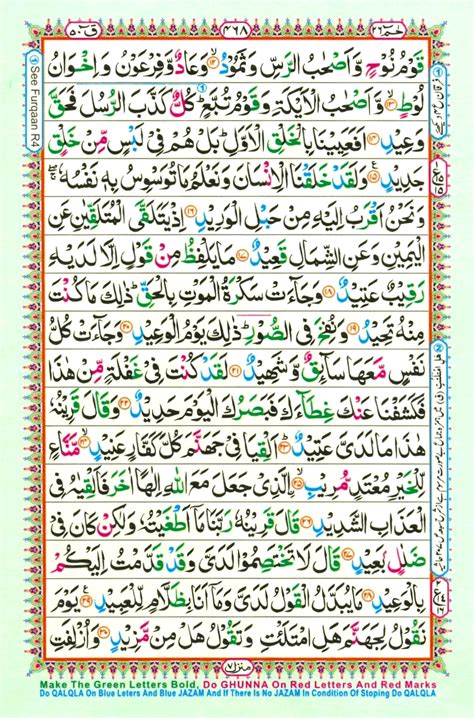 حٰمٓ ۲۶ ۴۶۸ قٓ ۵۰
قَوْمُ نُوْحٍ وَّاَصْحٰبُ الرَّسِّ وَثَمُوْدُ ۙ﴿۱۲﴾ وَعَادٌ وَّفِرْعَوْنُ وَاِخْوَانُ
لُوْطٍ ۙ﴿۱۳﴾ وَّاَصْحٰبُ الْاَيْكَةِ وَقَوْمُ تُبَّعٍ ؕ كُلٌّ كَذَّبَ الرُّسُلَ فَحَقَّ
وَعِيْدِ ﴿۱۴﴾ اَفَعَيِيْنَا بِالْخَلْقِ الْاَوَّلِ ؕ بَلْ هُمْ فِيْ لَبْسٍ مِّنْ خَلْقٍ
جَدِيْدٍ ﴿۱۵﴾ وَلَقَدْ خَلَقْنَا الْاِنْسَانَ وَنَعْلَمُ مَا تُوَسْوِسُ بِهٖ نَفْسُهٗ ۖۚ
وَنَحْنُ اَقْرَبُ اِلَيْهِ مِنْ حَبْلِ الْوَرِيْدِ ﴿۱۶﴾ اِذْ يَتَلَقَّى الْمُتَلَقِّيٰنِ عَنِ
الْيَمِيْنِ وَعَنِ الشِّمَالِ قَعِيْدٌ ﴿۱۷﴾ مَا يَلْفِظُ مِنْ قَوْلٍ اِلَّا لَدَيْهِ
رَقِيْبٌ عَتِيْدٌ ﴿۱۸﴾ وَجَآءَتْ سَكْرَةُ الْمَوْتِ بِالْحَقِّ ؕ ذٰلِكَ مَا كُنْتَ
مِنْهُ تَحِيْدُ ﴿۱۹﴾ وَنُفِخَ فِي الصُّوْرِ ؕ ذٰلِكَ يَوْمُ الْوَعِيْدِ ﴿۲۰﴾ وَجَآءَتْ كُلُّ
نَفْسٍ مَّعَهَا سَآئِقٌ وَّشَهِيْدٌ ﴿۲۱﴾ لَقَدْ كُنْتَ فِيْ غَفْلَةٍ مِّنْ هٰذَا
فَكَشَفْنَا عَنْكَ غِطَآءَكَ فَبَصَرُكَ الْيَوْمَ حَدِيْدٌ ﴿۲۲﴾ وَقَالَ قَرِيْنُهٗ
هٰذَا مَا لَدَيَّ عَتِيْدٌ ؕ﴿۲۳﴾ اَلْقِيَا فِيْ جَهَنَّمَ كُلَّ كَفَّارٍ عَنِيْدٍ ۙ﴿۲۴﴾ مَّنَّاعٍ
لِّلْخَيْرِ مُعْتَدٍ مُّرِيْبِ ۙ﴿۲۵﴾ الَّذِيْ جَعَلَ مَعَ اللّٰهِ اِلٰهًا اٰخَرَ فَاَلْقِيٰهُ فِي
الْعَذَابِ الشَّدِيْدِ ﴿۲۶﴾ قَالَ قَرِيْنُهٗ رَبَّنَا مَاۤ اَطْغَيْتُهٗ وَلٰكِنْ كَانَ فِيْ
ضَلٰلٍۭ بَعِيْدٍ ﴿۲۷﴾ قَالَ لَا تَخْتَصِمُوْا لَدَيَّ وَقَدْ قَدَّمْتُ اِلَيْكُمْ
بِالْوَعِيْدِ ﴿۲۸﴾ مَا يُبَدَّلُ الْقَوْلُ لَدَيَّ وَمَاۤ اَنَا بِظَلَّامٍ لِّلْعَبِيْدِ ﴿۲۹﴾ يَوْمَ
نَقُوْلُ لِجَهَنَّمَ هَلِ امْتَلَاْتِ وَتَقُوْلُ هَلْ مِنْ مَّزِيْدٍ ﴿۳۰﴾ وَاُزْلِفَتِ
منزل ۷
See Furqaan R4
Make The Green Letters Bold, Do GHUNNA On Red Letters And Red Marks
Do QALQLA On Blue Leters And Blue JAZAM And If There Is No JAZAM In Condition Of Stoping Do QALQLA